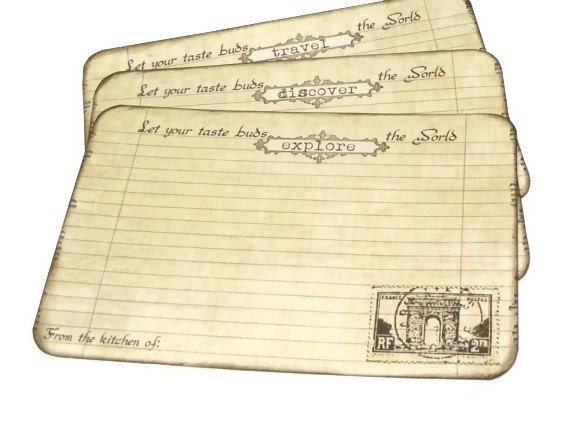 Let your taste buds travel the World
Let your taste buds discover the World
Let your taste buds explore the World
FRANCE POSTES
RF 2F
From the kitchen of: